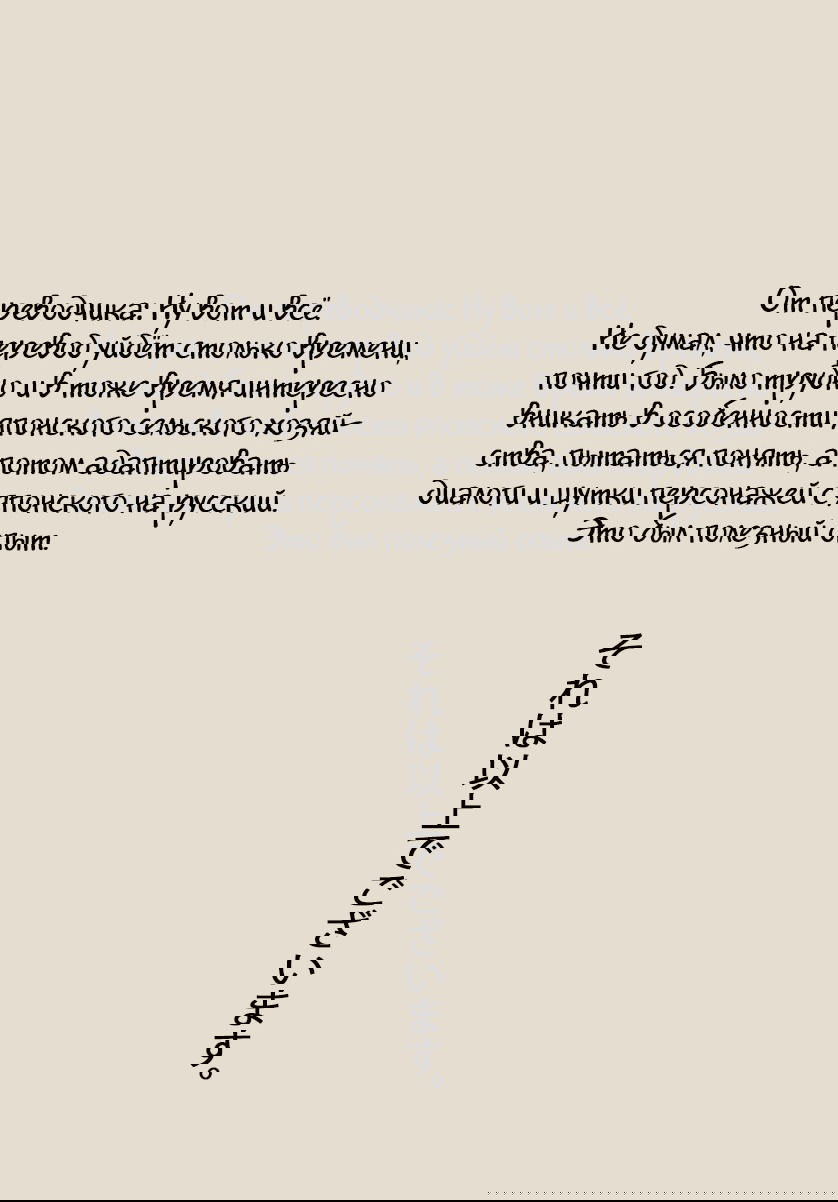 От переводчика: Ну вот и всё.
Не думал, что на перевод уйдёт столько времени,
почти год. Было трудно и в тоже время интересно
вникать в особенности японского сельского хозяй-
ства, пытаться понять, а потом адаптировать
диалоги и шутки персонажей с японского на русский.
Это был полезный опыт.